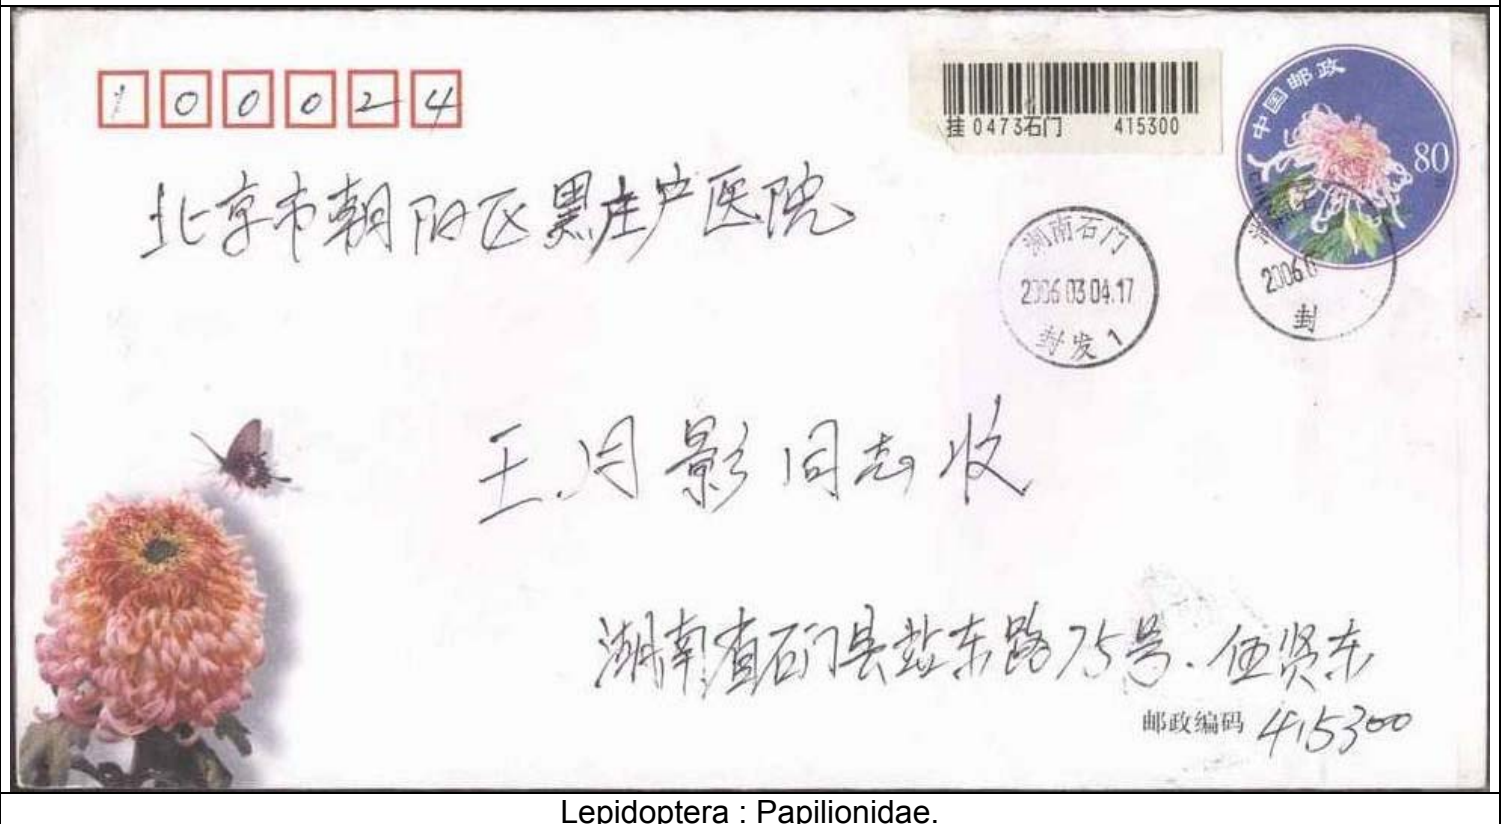 100024
挂 0473石门 415300
中国邮政
80
北京市朝阳区黑庄户医院
湖南石门
2006 03 04.17
封发 1
2006.0
封
王月影同志收
湖南省石门县站东路75号.伍贤东
邮政编码 415300
Lepidoptera : Papilionidae.